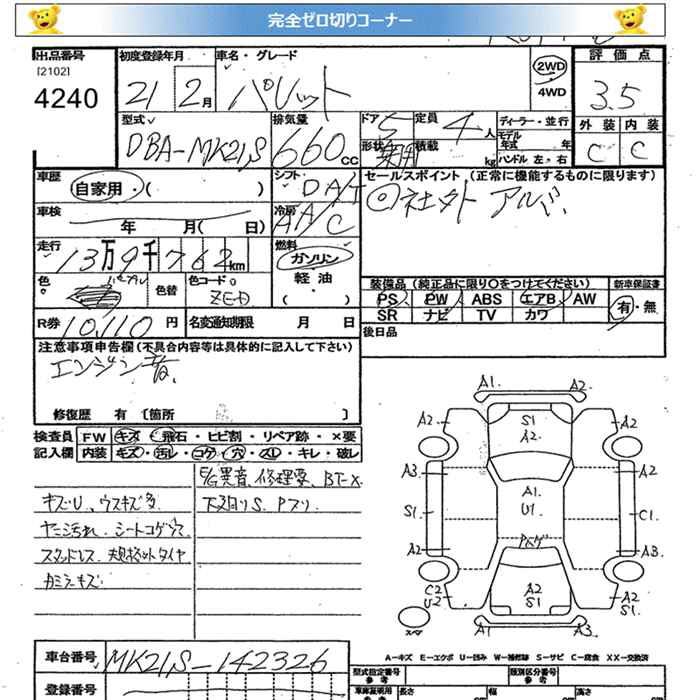 完全ゼロ切りコーナー
出品番号 初度登録年月 車名・グレード 評価点
[2102]
4240 21 2月 パレット 2WD 4WD 3.5
型式 排気量 ドア 5 定員 4人 ディーラー・並行 外装 内装
DBA-MK21S 660cc 形状 積載 kg モデル年式 年 ハンドル 左・右 C C
車歴 シフト セールスポイント (正常に機能するものに限ります)
自家用・( ) DA/T ◎社外アルミ
車検 年 月( 日) 冷房 A/C
走行 13万9千762km 燃料 ガソリン 軽油・( )
色 パープル 色替 色コード ZED
装備品 (純正品に限り○をつけてください) 新車保証書
PS PW ABS エアB AW 有・無
SR ナビ TV カワ
R券 10,110円 名変通知期限 月 日 後日品
注意事項申告欄(不具合内容等は具体的に記入して下さい)
エンジン音
修復歴 有 [箇所 ]
検査員 FW キズ・飛石・ヒビ割・リペア跡・×要
記入欄 内装 キズ・汚レ・コゲ・穴・スレ・キレ・破レ
E/G異音、修理要、BT-X
キズU、ウスキズ多 下廻りS、Pブリ
ヤニ汚れ、シートコゲ穴
スタッドレス、規格外タイヤ
カミラキズ
A1 A2
A2 S1 A2 A2
A3 A1 A2
S1 U1 C1
A2 A3
C2 U2 A2 S1 A2 S1
スペア A1 A3
A-キズ E-エクボ U-凹み W-補修跡 S-サビ C-腐食 XX-交換済
車台番号 MK21S-142326 型式指定番号 類別区分番号
登録番号 車庫証明用参考 長さ 幅 高さ